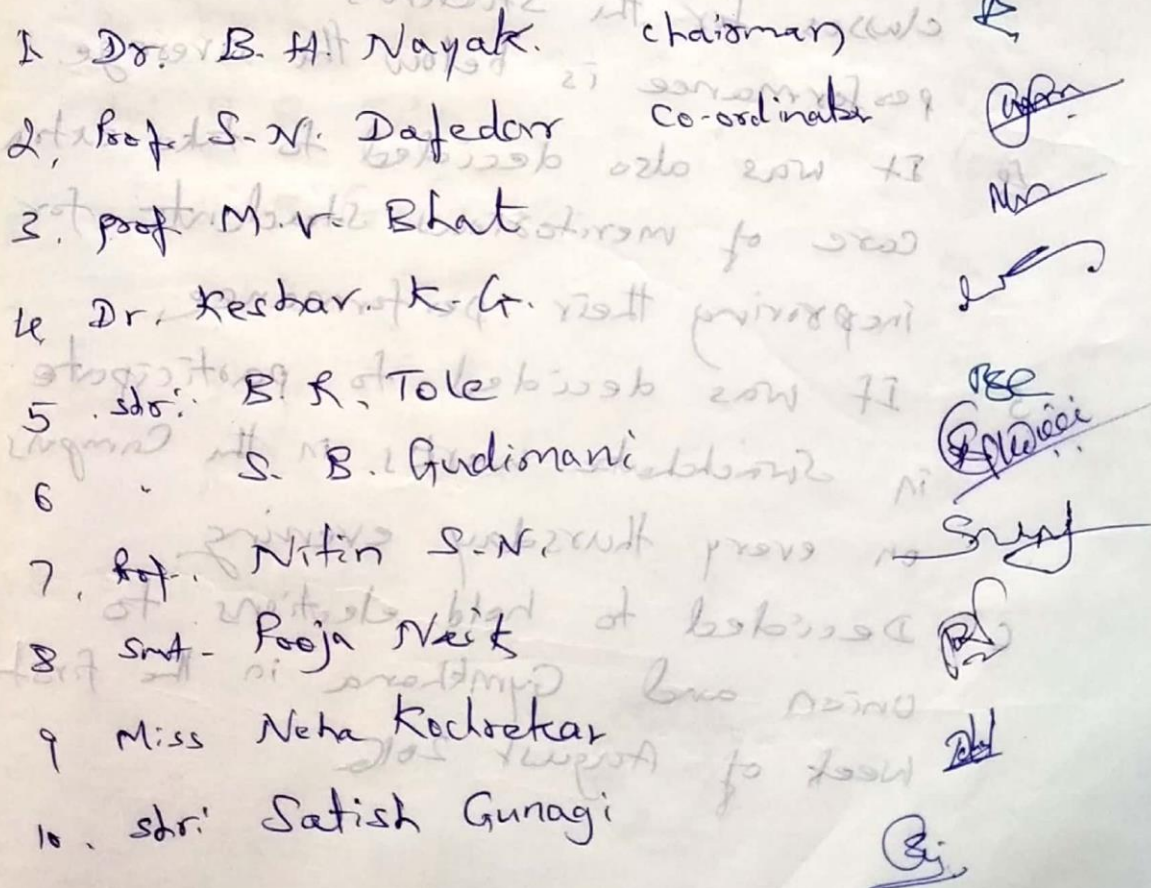 1 Dr. B. H. Nayak. Chairman
2, Prof. S-N. Dafedar Co-ordinator
3. prof. M.V. Bhat
4 Dr. Keshav. K-G.
5. Shri: B. R. Tole
6 " S. B. Gudimani
7. Prof. Nitin S.N.
8 Smt- Pooja Naik
9 Miss Neha Kochrekar
10. Shri: Satish Gunagi